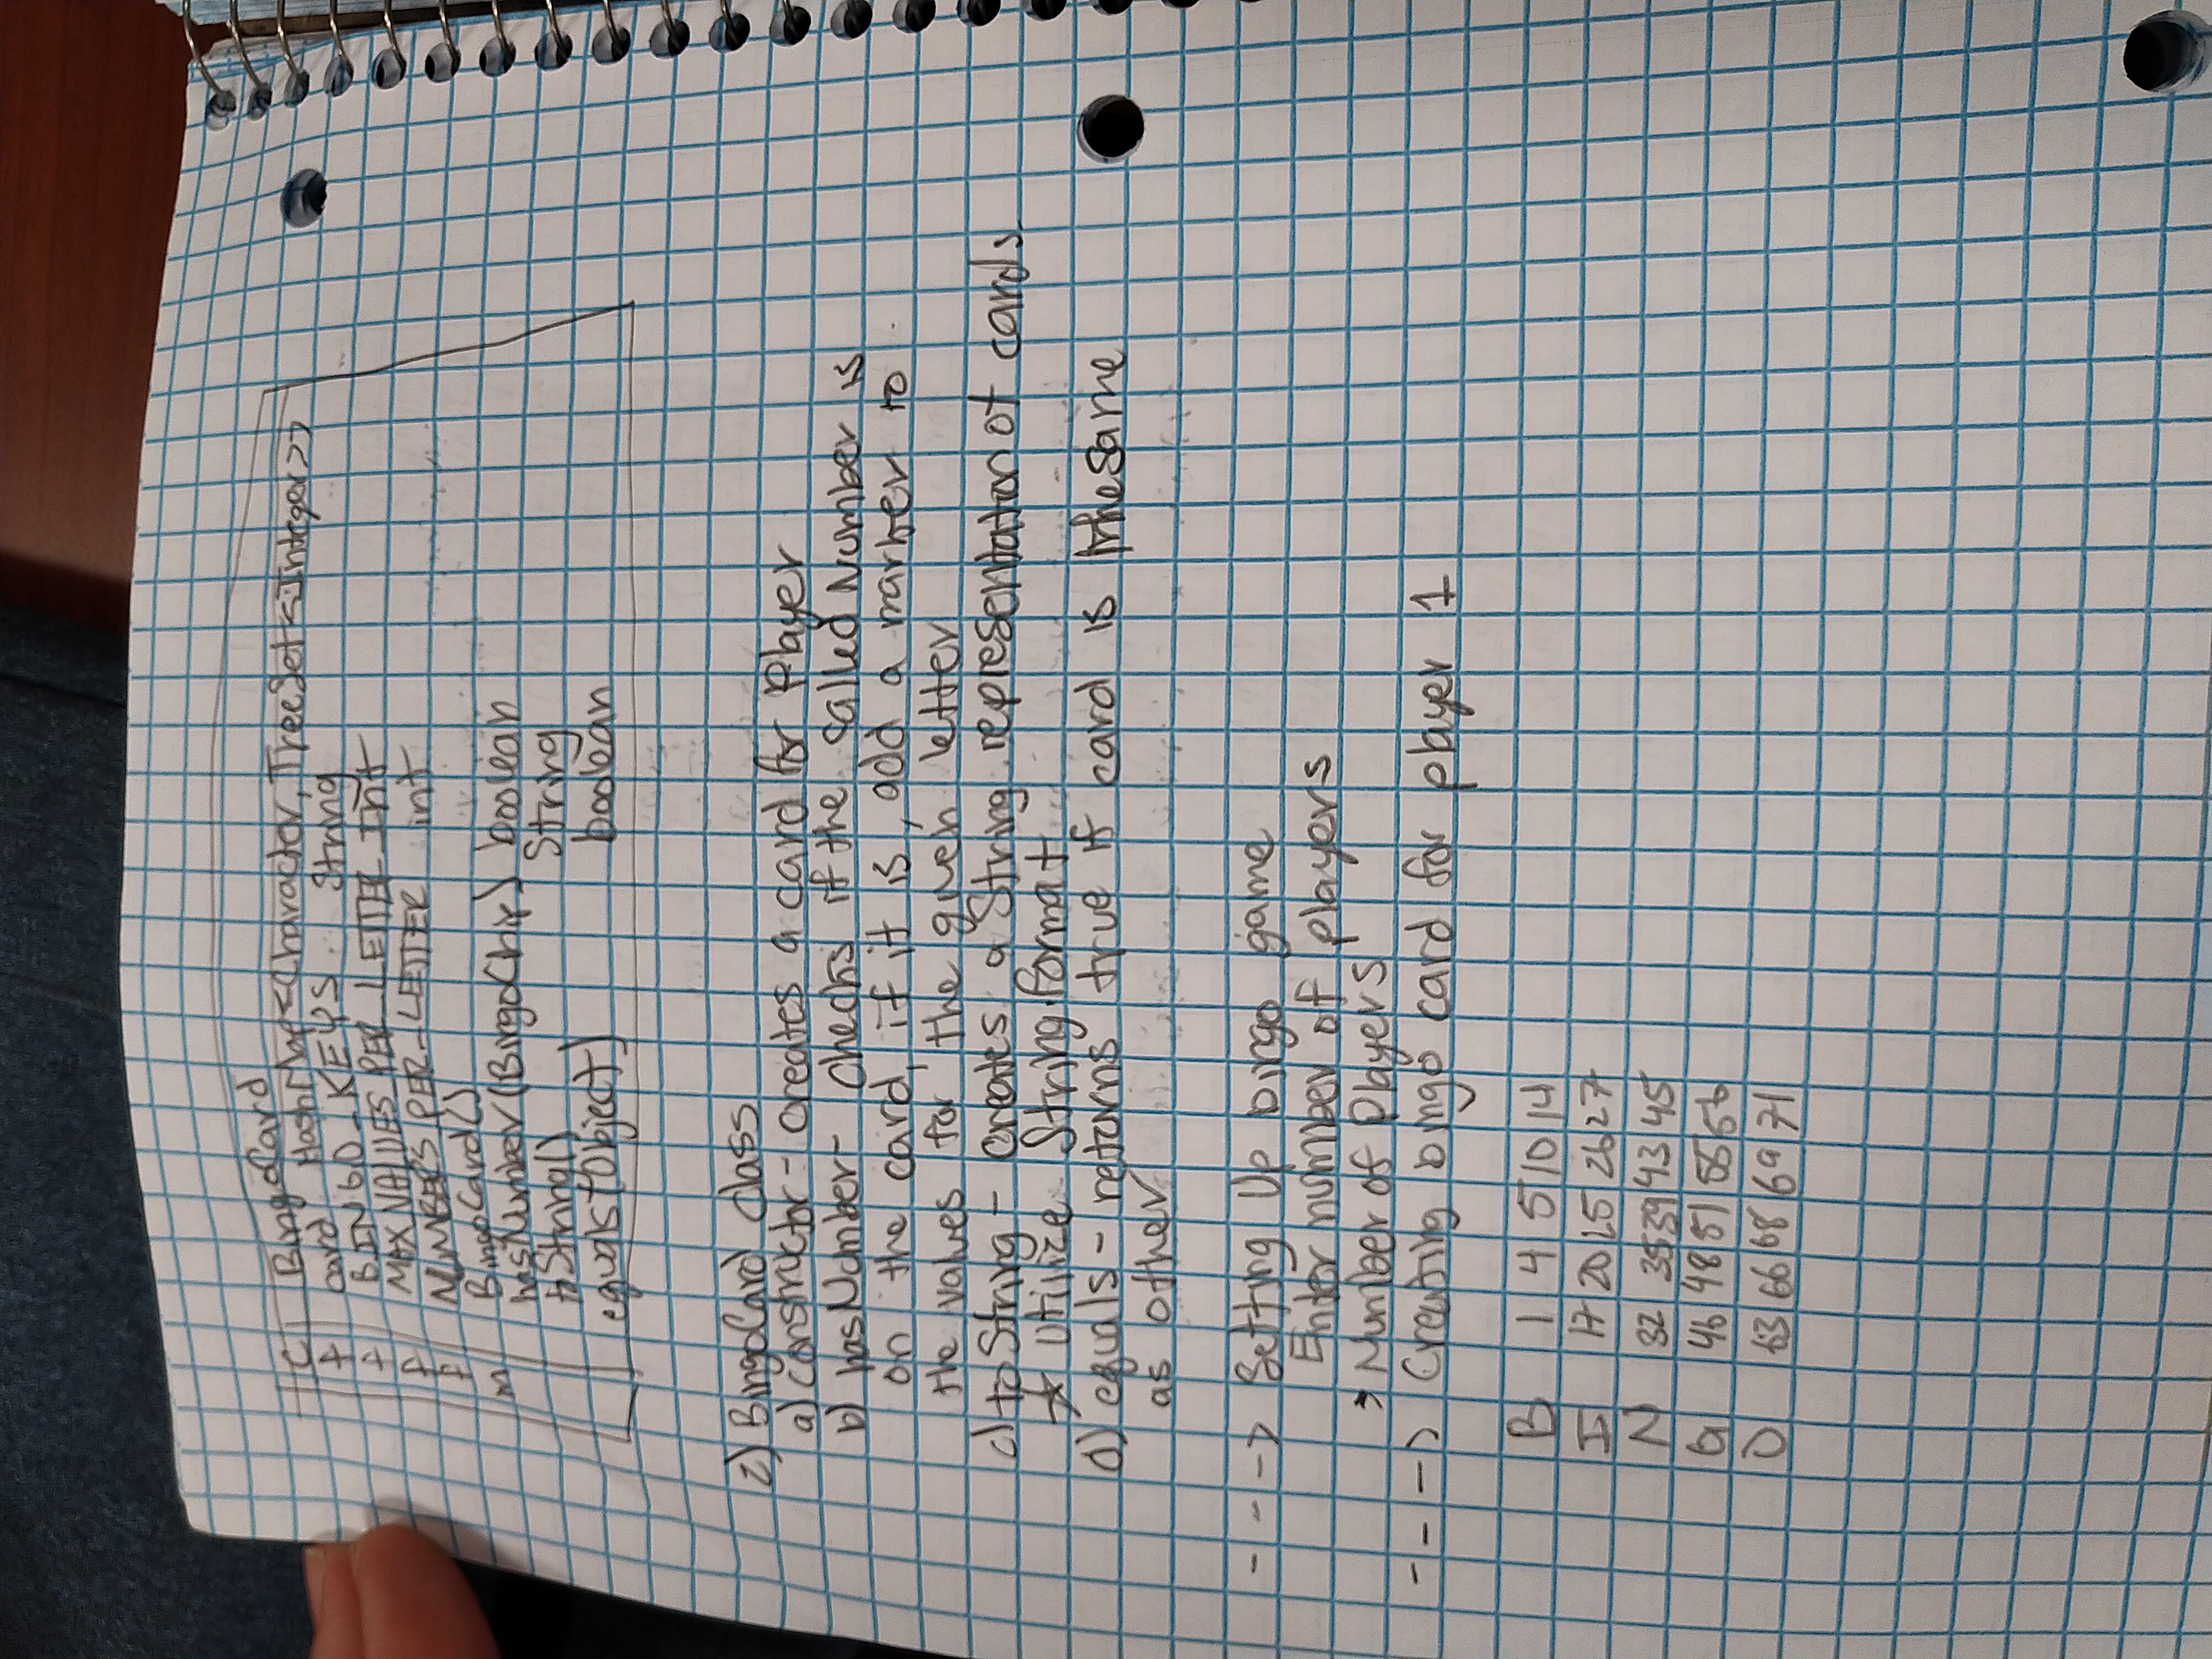 C BingoCard
f card HashMap<Character, TreeSet<Integer>>
f BINGO_KEYS String
f MAX_VALUES_PER_LETTER int
f NUMBERS_PER_LETTER int
m BingoCard()
hasNumber(BingoChip) boolean
toString() String
equals(Object) boolean
2) BingoCard class
a) constructor - creates a card for Player
b) hasNumber - checks if the called Number is
on the card, if it is, add a marker to
the values for the given letter
c) toString - creates a String representation of cards.
★ Utilize String.format
d) equals - returns true if card is the same
as other
---> Setting Up bingo game
Enter number of players
> Number of Players
---> Creating bingo card for player 1
B 1 4 5 10 14
I 17 20 25 26 27
N 32 35 39 43 45
G 46 48 51 55 56
O 63 66 68 69 71